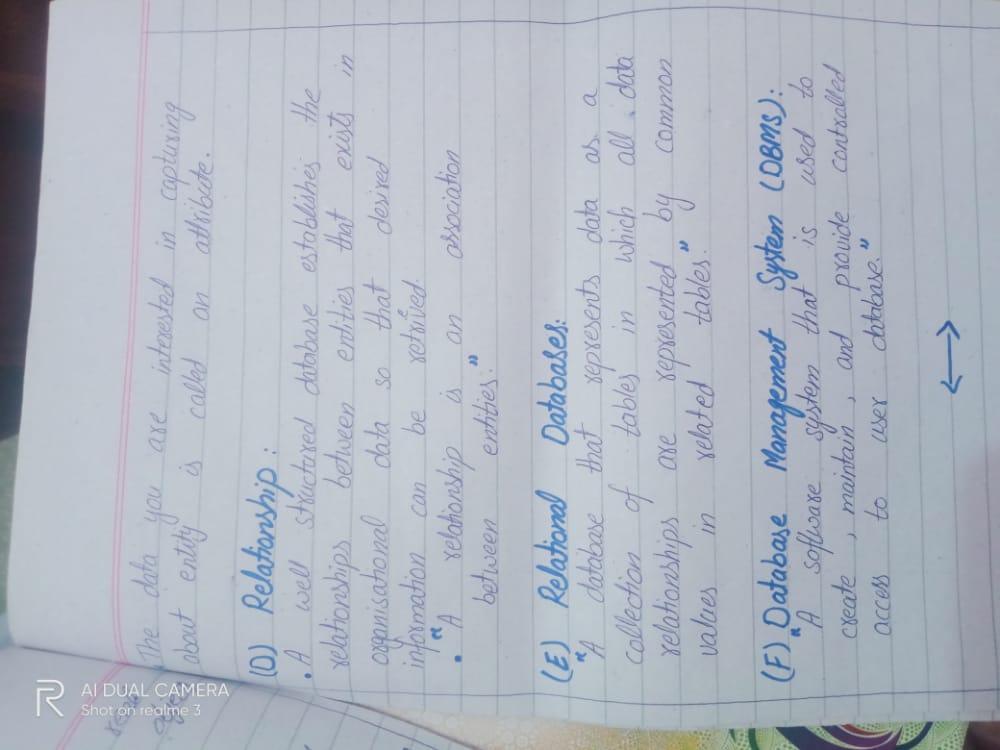 The data you are interested in capturing
about entity is called an attribute.
(D) Relationship:
• A well structured database establishes the
relationships between entities that exists in
organisational data so that desired
information can be retrieved.
• "A relationship is an association
between entities."
(E) Relational Databases:
"A database that represents data as a
collection of tables in which all data
relationships are represented by common
values in related tables."
(F) Database Management System (DBMS):
"A software system that is used to
create, maintain, and provide controlled
access to user database."
AI DUAL CAMERA
Shot on realme 3